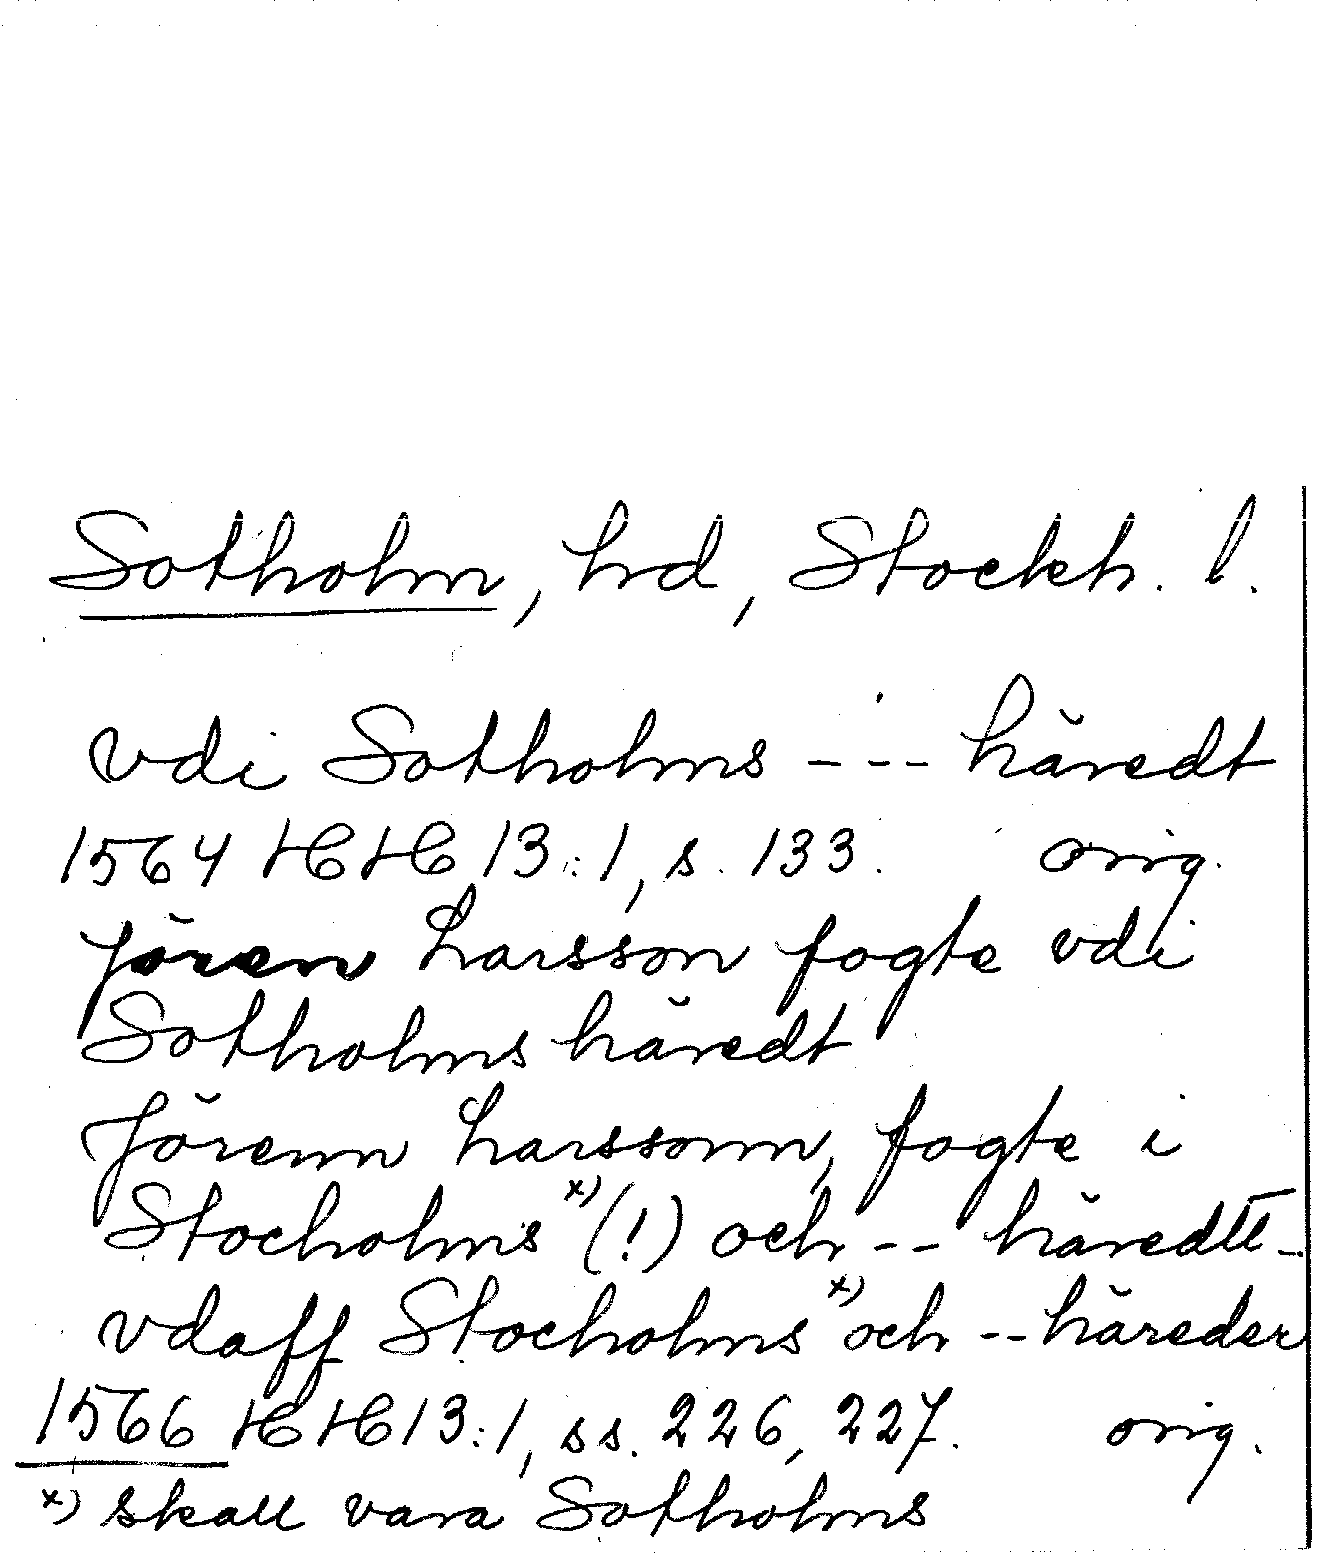 Sotholm, hd, Stockh. l.
vdi Sotholms --- häredt
1564 HH 13:1, s. 133. orig.
Jören Larsson fogte vdi
Sotholms häredt
Jörenn Larssonn, fogte i
Stocholms x) (!) och -- häredtt -
vdaff Stocholms x) och -- häreder
1566 HH 13:1, ss. 226, 227. orig.
x) skall vara Sotholms